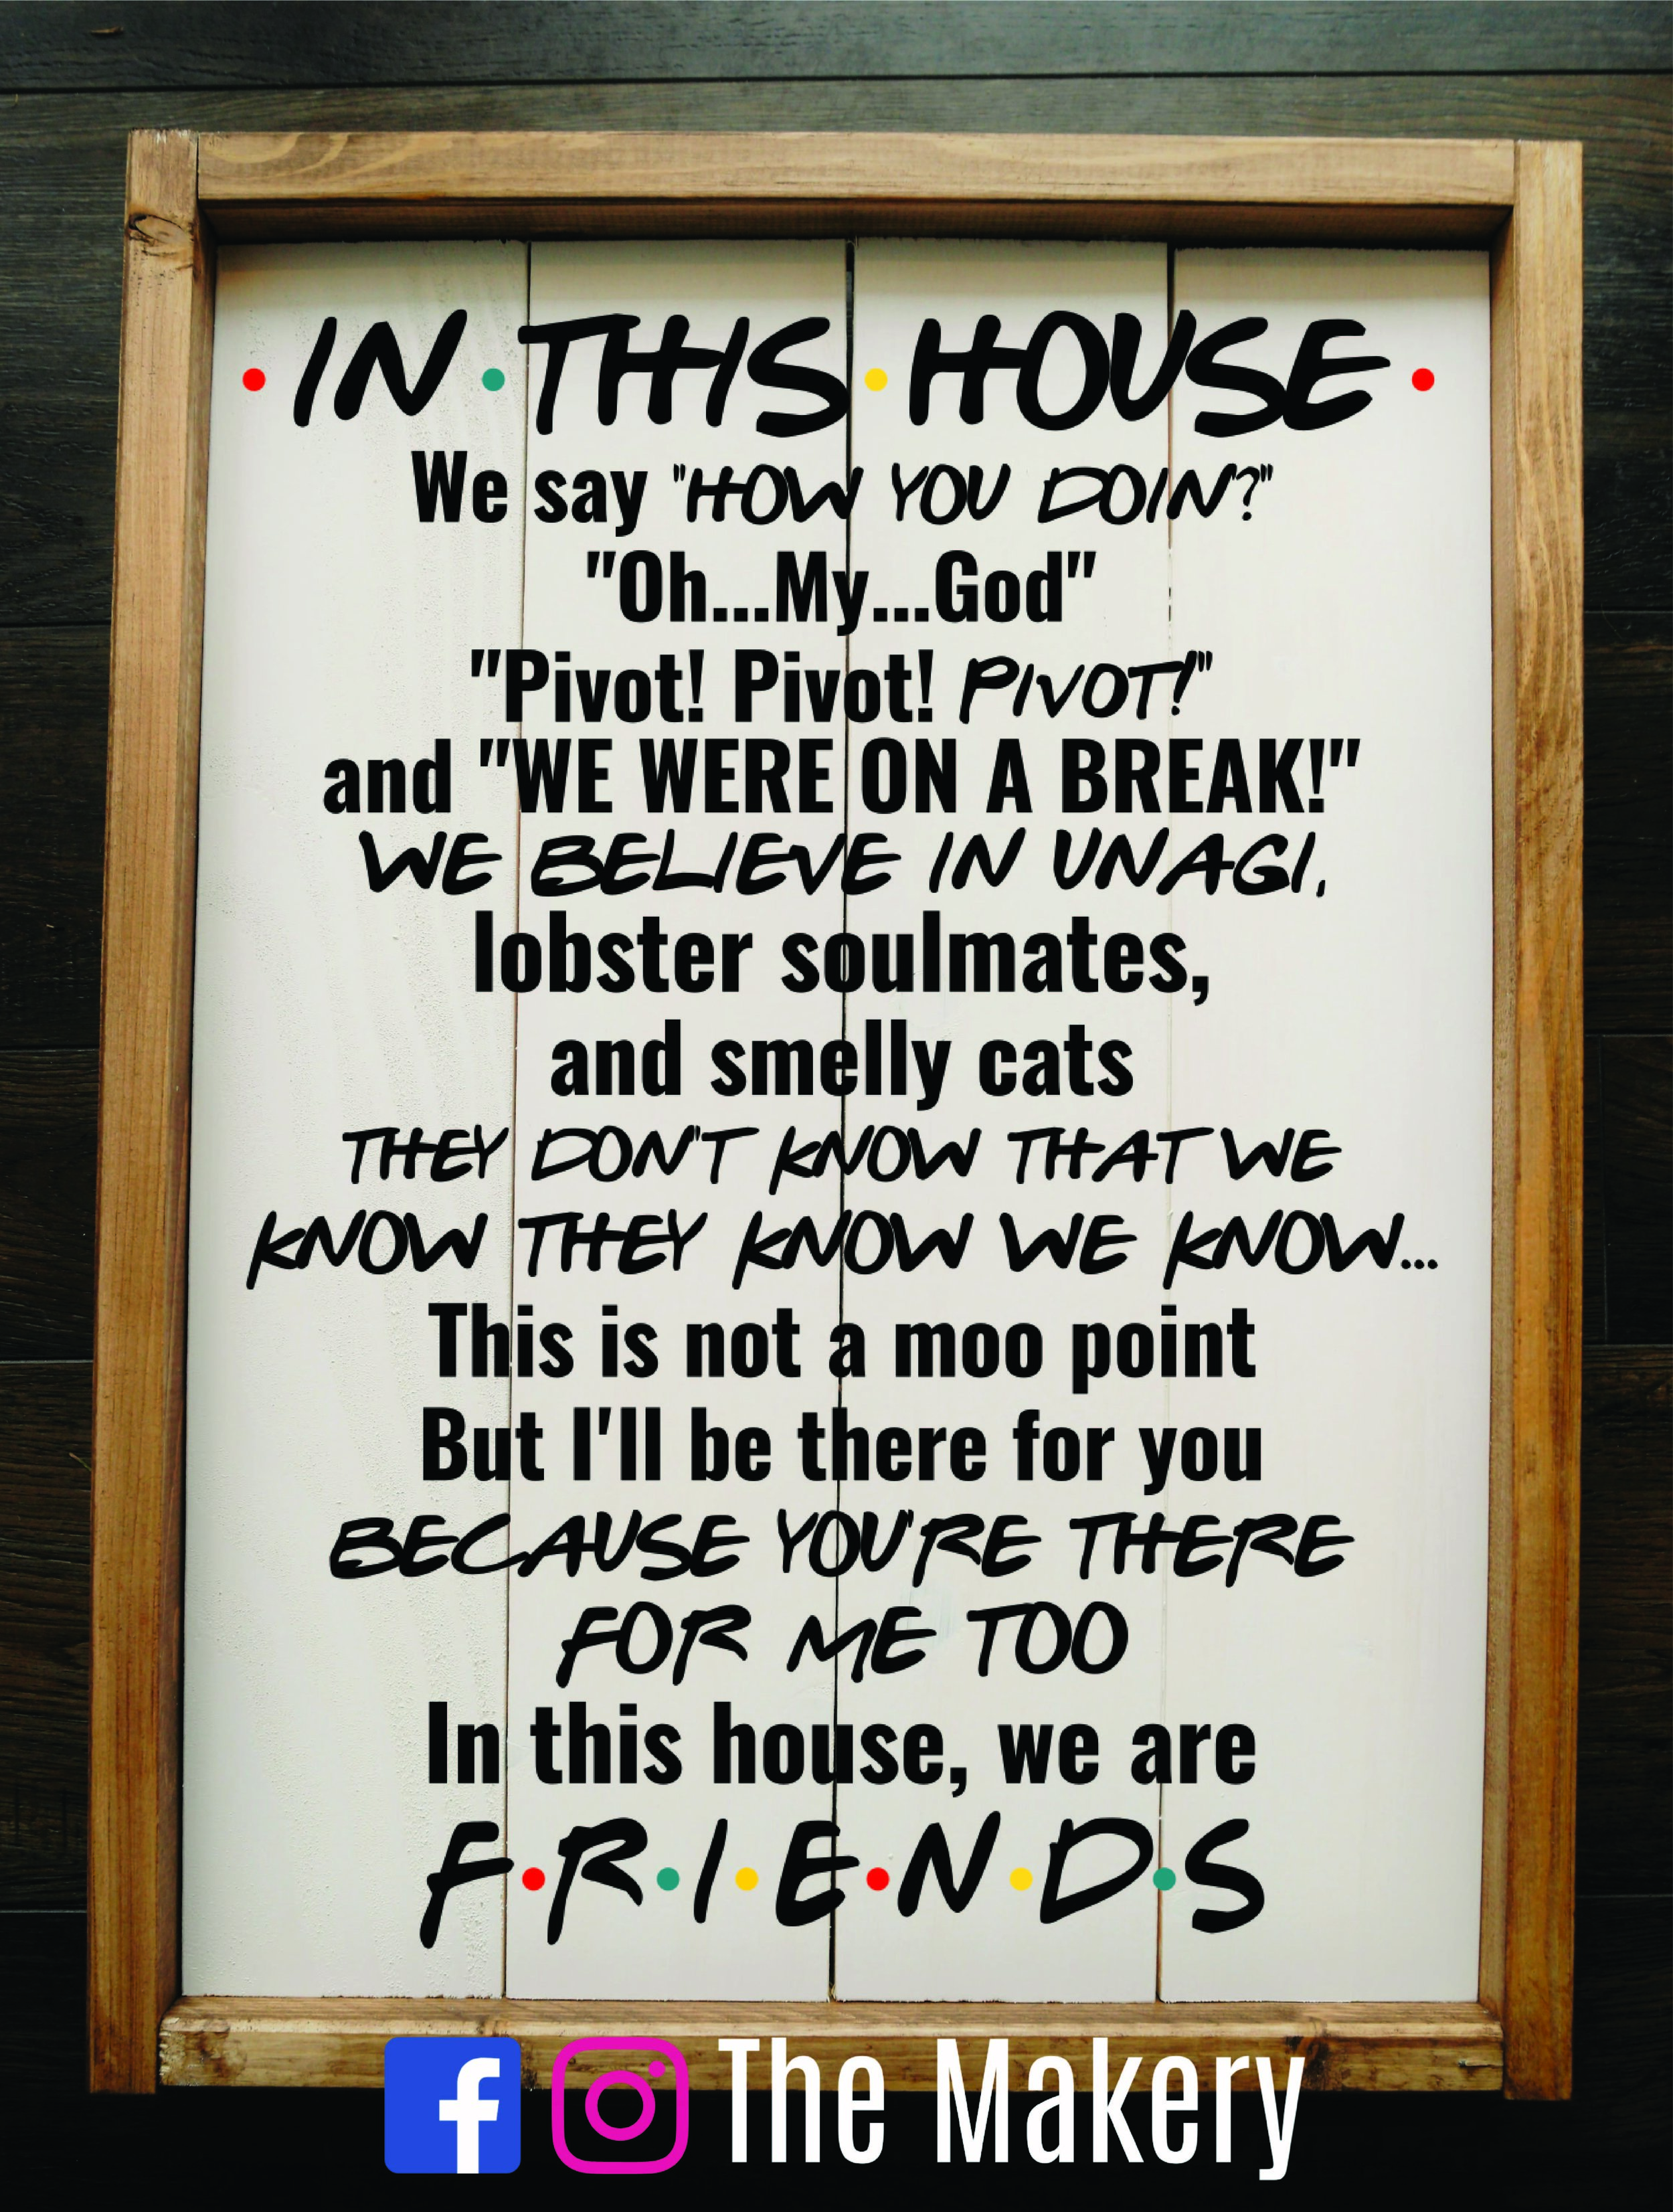 • IN • THIS • HOUSE •
We say "HOW YOU DOIN?"
"Oh...My...God"
"Pivot! Pivot! PIVOT!"
and "WE WERE ON A BREAK!"
WE BELIEVE IN UNAGI,
lobster soulmates,
and smelly cats
THEY DON'T KNOW THAT WE
KNOW THEY KNOW WE KNOW...
This is not a moo point
But I'll be there for you
BECAUSE YOU'RE THERE
FOR ME TOO
In this house, we are
F•R•I•E•N•D•S
The Makery